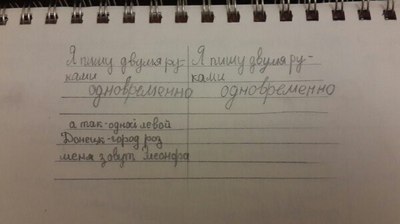 Я пишу двумя ру-
ками
одновременно
Я пишу двумя ру-
ками
одновременно
а так-одной левой
Донецк-город роз
меня зовут